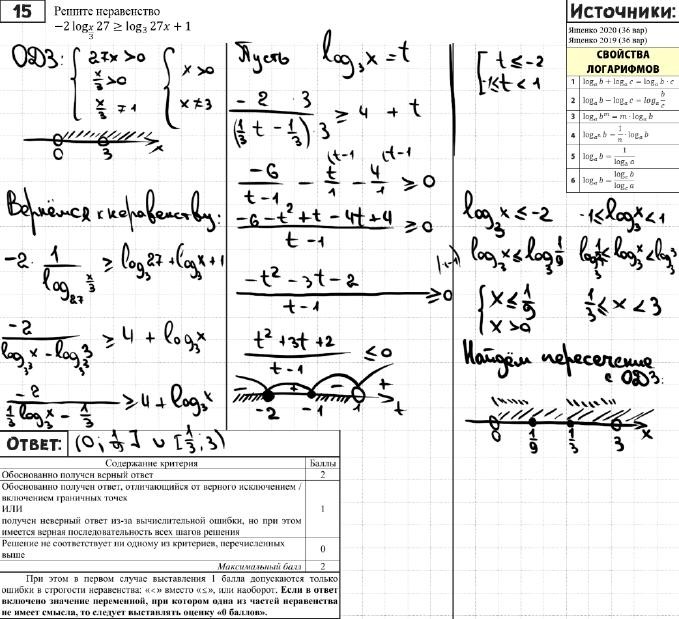 15
Решите неравенство
−2 log_{x/3} 27 ≥ log₃ 27x + 1
Источники:
Ященко 2020 (36 вар)
Ященко 2019 (36 вар)
СВОЙСТВА
ЛОГАРИФМОВ
1 logₐ b + logₐ c = logₐ b · c
2 logₐ b − logₐ c = logₐ b/c
3 logₐ bᵐ = m · logₐ b
4 log_{aⁿ} b = 1/n · logₐ b
5 logₐ b = 1/(log_b a)
6 logₐ b = (log_c b)/(log_c a)
ОДЗ:
{ 27x > 0
x/3 > 0
x/3 ≠ 1
{ x > 0
x ≠ 3
0 3 x
Вернёмся к неравенству:
−2 · 1/(log₂₇ x/3) ≥ log₃ 27 + log₃ x + 1
−2/(log_{3³} x − log_{3³} 3) ≥ 4 + log₃ x
−2/(1/3 log₃ x − 1/3) ≥ 4 + log₃ x
Пусть log₃ x = t
(−2 · 3)/((1/3 t − 1/3) · 3) ≥ 4 + t
−6/(t−1) − t/1 (t−1 − 4/1 (t−1 ≥ 0
(−6 − t² + t − 4t + 4)/(t−1) ≥ 0
(−t² − 3t − 2)/(t−1) ≥ 0 |·(−1)
(t² + 3t + 2)/(t−1) ≤ 0
− + − +
−2 −1 1 t
[ t ≤ −2
−1 ≤ t < 1
log₃ x ≤ −2 −1 ≤ log₃ x < 1
log₃ x ≤ log₃ 1/9 log₃ 1/3 ≤ log₃ x < log₃ 3
{ x ≤ 1/9
x > 0
1/3 ≤ x < 3
Найдём пересечение
с ОДЗ:
0 1/9 1/3 3 x
ОТВЕТ: (0; 1/9] ∪ [1/3; 3)
Содержание критерия Баллы
Обоснованно получен верный ответ 2
Обоснованно получен ответ, отличающийся от верного исключением /
включением граничных точек
ИЛИ
получен неверный ответ из-за вычислительной ошибки, но при этом
имеется верная последовательность всех шагов решения
1
Решение не соответствует ни одному из критериев, перечисленных
выше
0
Максимальный балл 2
При этом в первом случае выставления 1 балла допускаются только
ошибки в строгости неравенства: «<» вместо «≤», или наоборот. Если в ответ
включено значение переменной, при котором одна из частей неравенства
не имеет смысла, то следует выставлять оценку «0 баллов».